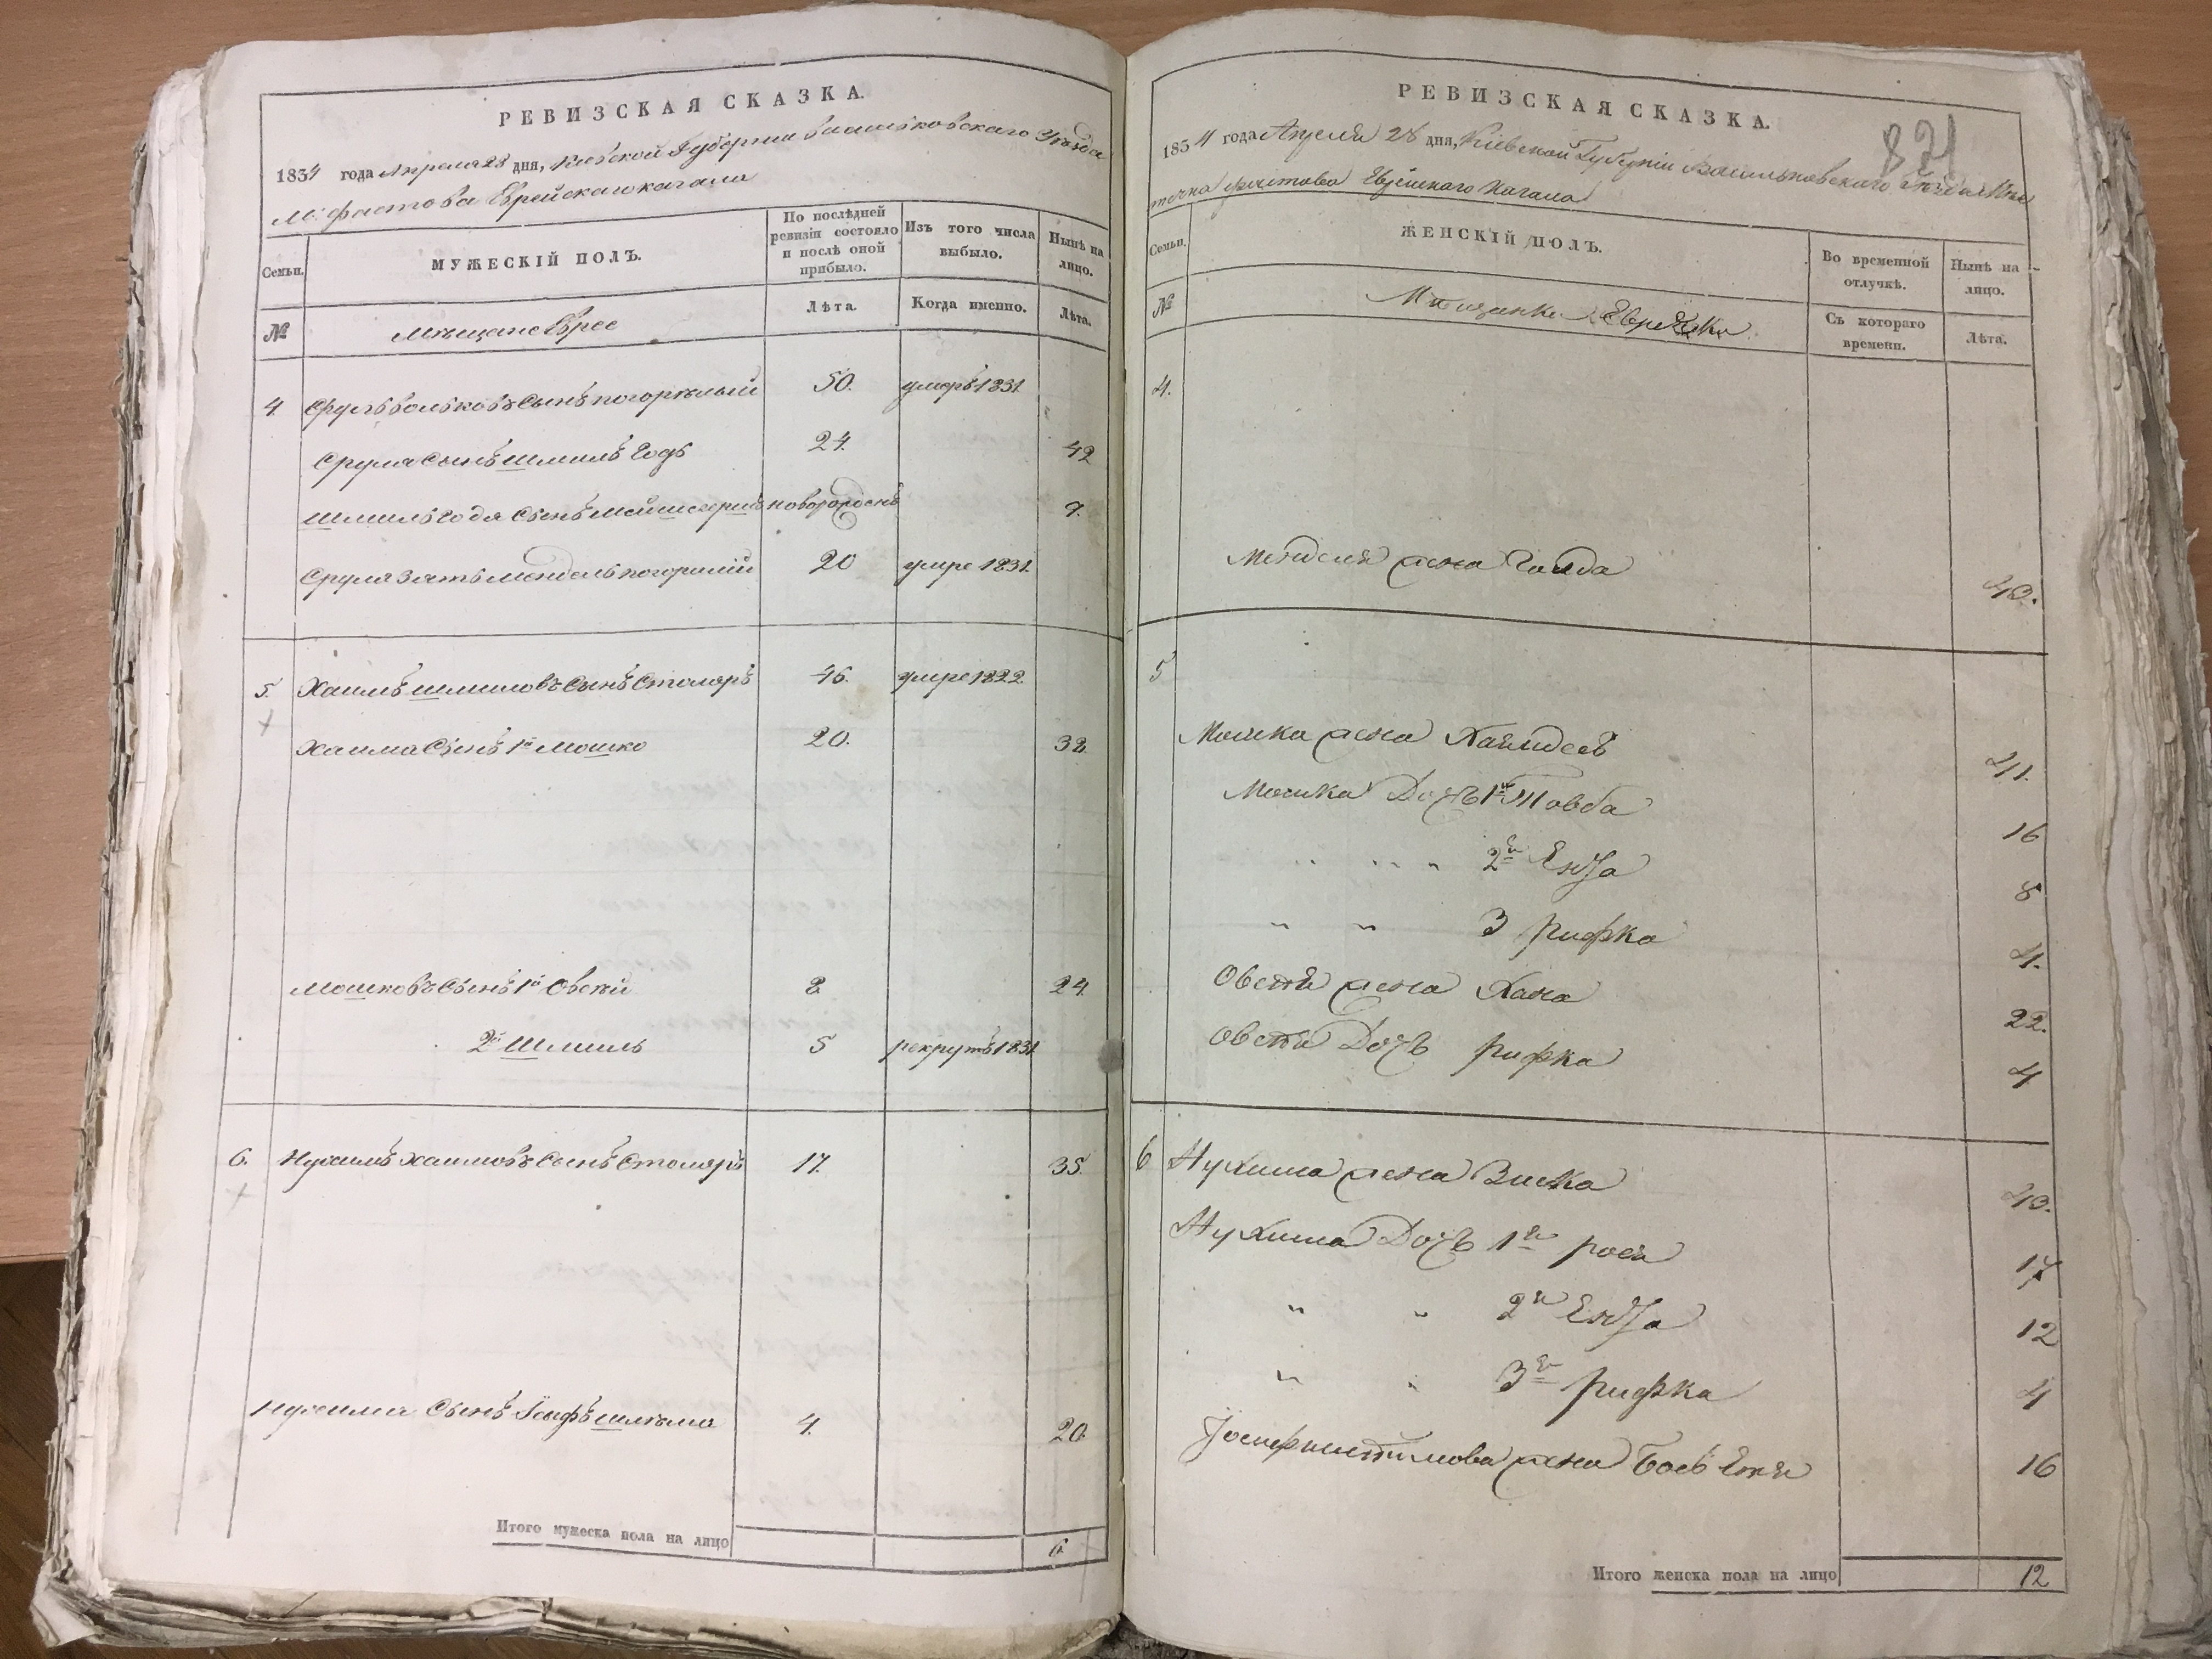 РЕВИЗСКАЯ СКАЗКА.
1834 года Апреля 28 дня, Киевской Губернии Васильковского Уезда
М: Фастова Еврейскаго кагала
Семьи.
МУЖЕСКІЙ ПОЛЪ.
По послѣдней ревизіи состояло и послѣ оной прибыло.
Изъ того числа выбыло.
Нынѣ на лицо.
№
Мещане Евреи
Лѣта.
Когда именно.
Лѣта.
4. Сруль Вольковъ Сынъ погорелый 50. умеръ 1831.
Сруля Сынъ Шмиль 24. 42
Сынъ новорожденъ 9.
Сруля зять Мендель 20 умре 1831.
5. Хаимъ Шмиловъ Сынъ Столяръ 46. умре 1822.
Хаима Сынъ 1й Мошко 20. 32.
Мошковъ Сынъ 1й Овсѣй 8. 24.
2й Шмиль 5 рекрутъ 1831.
6. Нухимъ Хаимовъ Сынъ Столяръ 17. 35.
Нухима Сынъ 4. 20.
Итого мужеска пола на лицо 6.
821
РЕВИЗСКАЯ СКАЗКА.
1834 года Апреля 28 дня, Кіевской Губерніи Васильковскаго Уезда Мѣс
течка Фастова Еврейскаго Кагала
Семьи.
ЖЕНСКІЙ ПОЛЪ.
Во временной отлучкѣ.
Нынѣ на лицо.
№
Мещанки Еврейки
Съ котораго времени.
Лѣта.
4.
Менделя жена Голда 40.
5
Мошка жена 41.
Мошка Дочь 1я Товба 16
" " " 2я Ента 8
" " 3 Рифка 4.
Овсея жена Хана 22.
Овсея Дочь Рифка 4
6 Нухима жена 40.
Нухима Дочь 1я рося 17
" " 2я Ента 12
" " 3я Рифка 4
жена 16
Итого женска пола на лицо 12